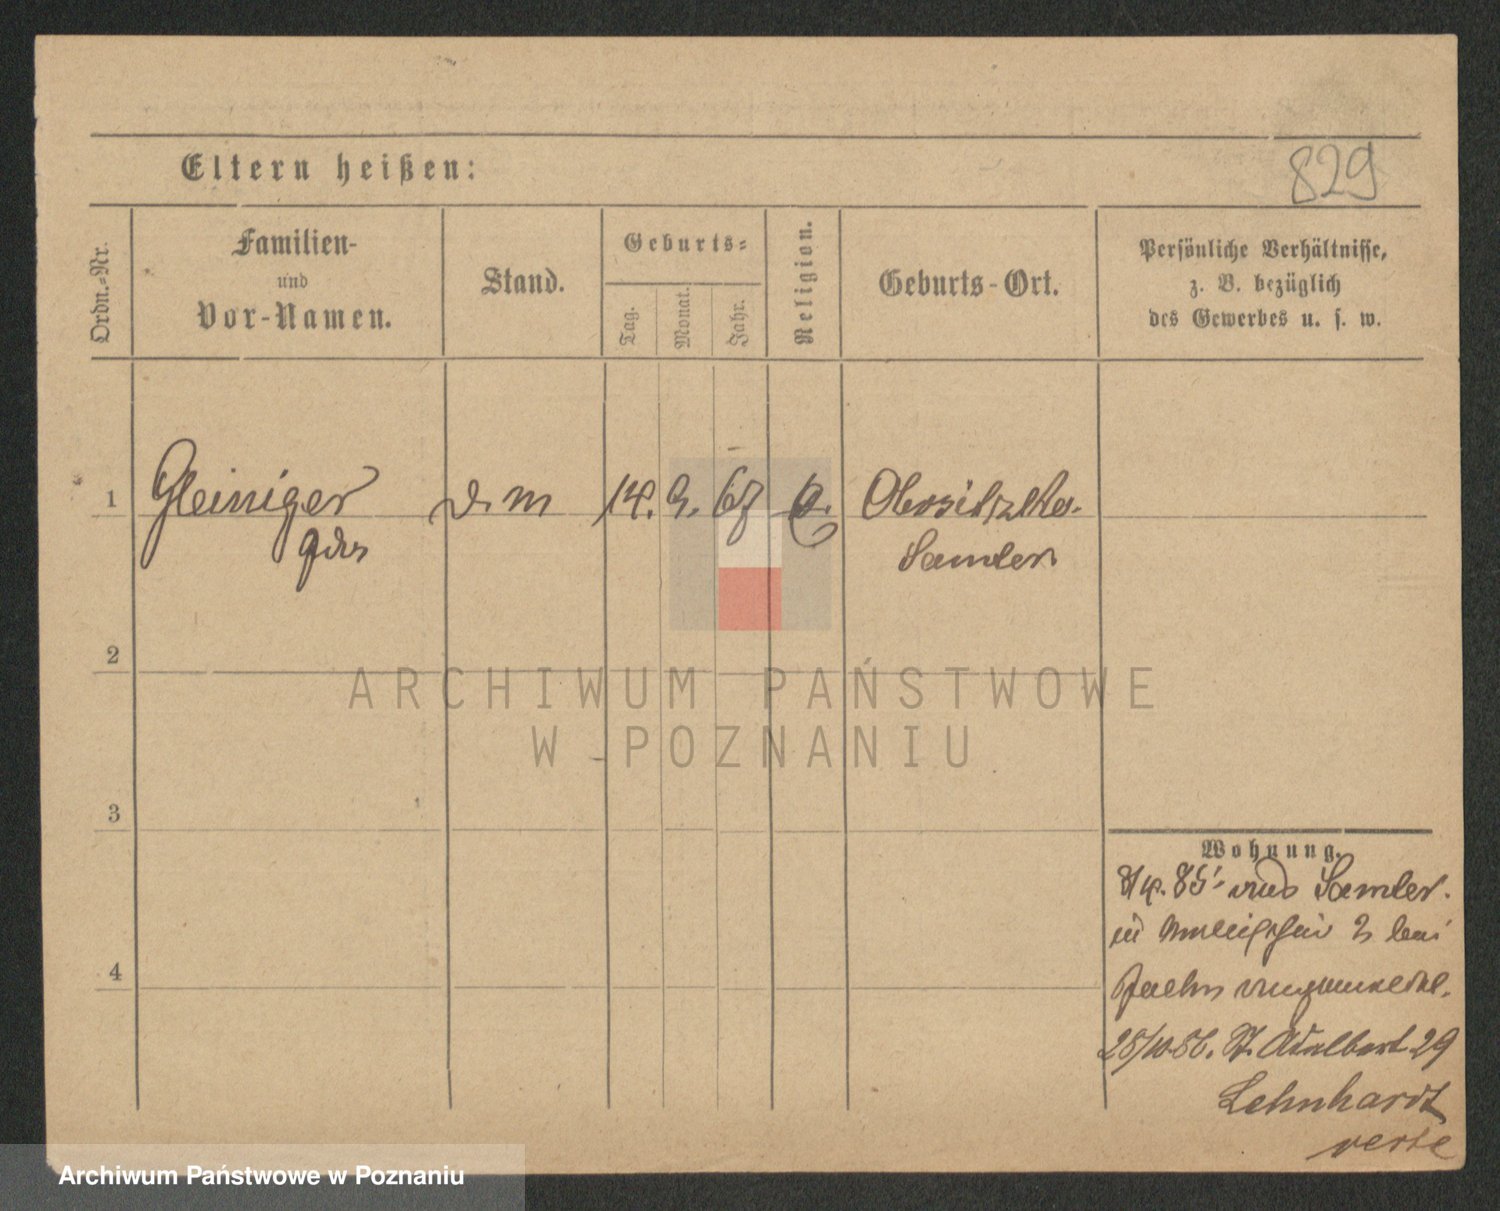 829
Eltern heißen:
Ordn.-Nr.
Familien-
und
Vor-Namen.
Stand.
Geburts-
Tag.
Monat.
Jahr.
Religion.
Geburts-Ort.
Persönliche Verhältnisse,
z. B. bezüglich
des Gewerbes u. s. w.
1
Gleiniger
Ida
d. m
14. 9. 67
Obersitzko
Samter
2
ARCHIWUM PAŃSTWOWE
W POZNANIU
3
4
Wohnung.
8/4. 85 aus Samter
in 2 bei
angemeldet.
28/10 86. St. Adalbert 29
Lehnhardt
verte
Archiwum Państwowe w Poznaniu